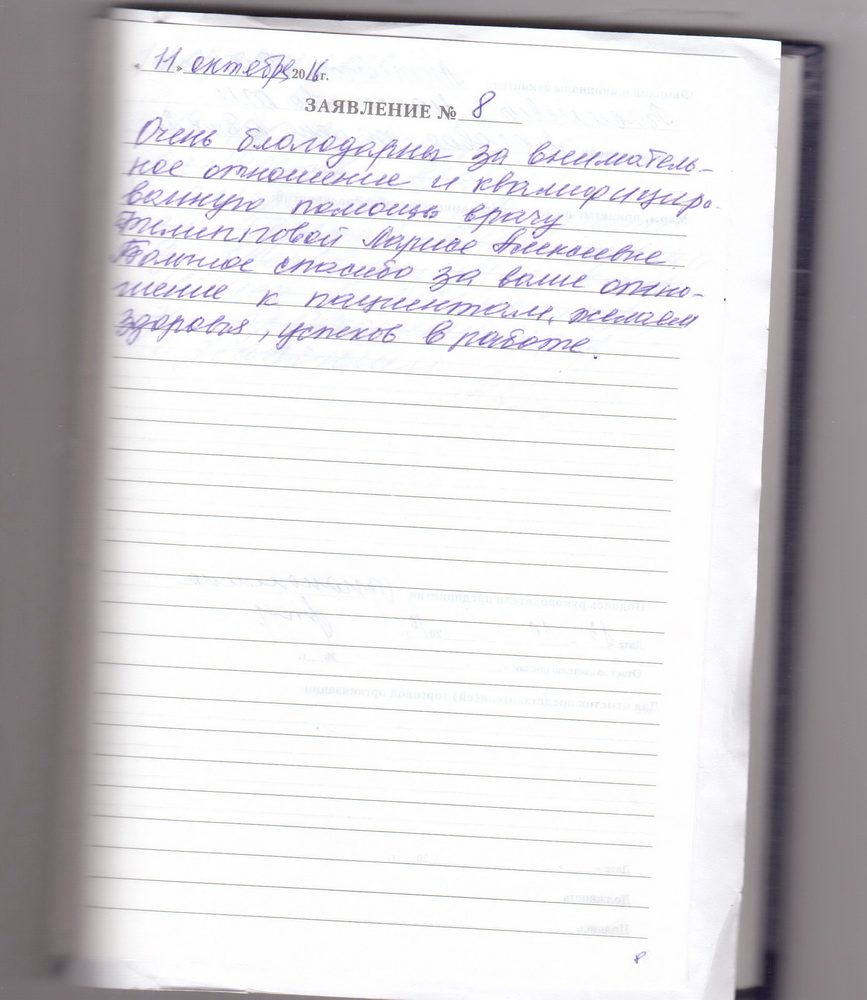 " 11 " октября 2016 г.
ЗАЯВЛЕНИЕ № 8
Очень благодарны за вниматель-
ное отношение и квалифициро-
ванную помощь врачу
Филипповой Ларисе Алексеевне.
Большое спасибо за ваше отно-
шение к пациентам, желаем
здоровья, успехов в работе.
8